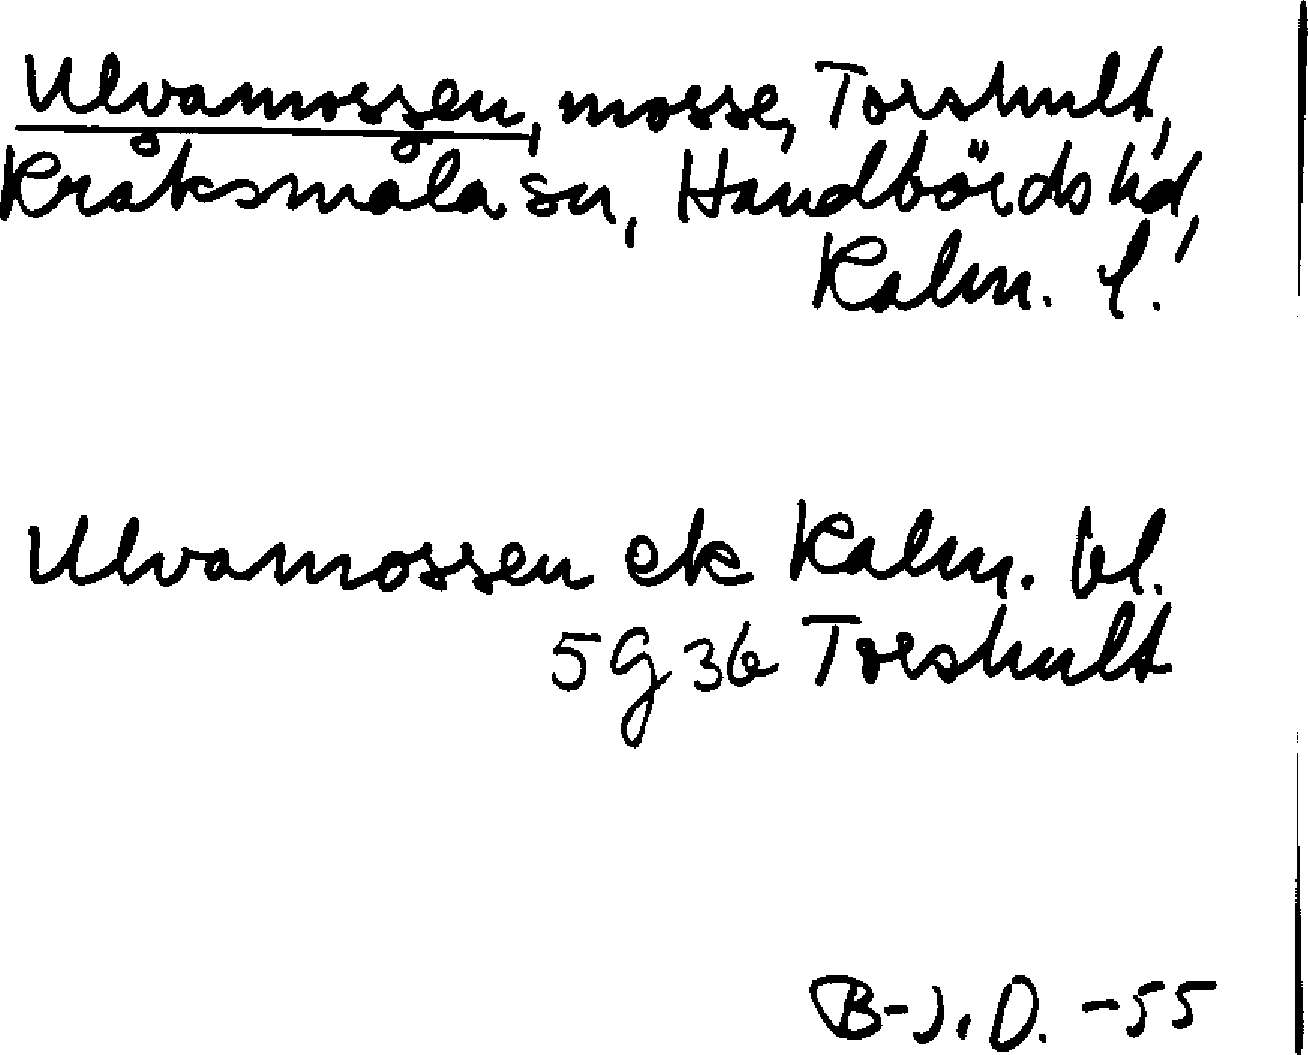 Ulvamossen, mosse, Torshult,
Kråksmåla sn, Handbörds hd,
Kalm. l.
Ulvamossen ek Kalm. bl.
5 g 36 Torshult
B-J. D. -55